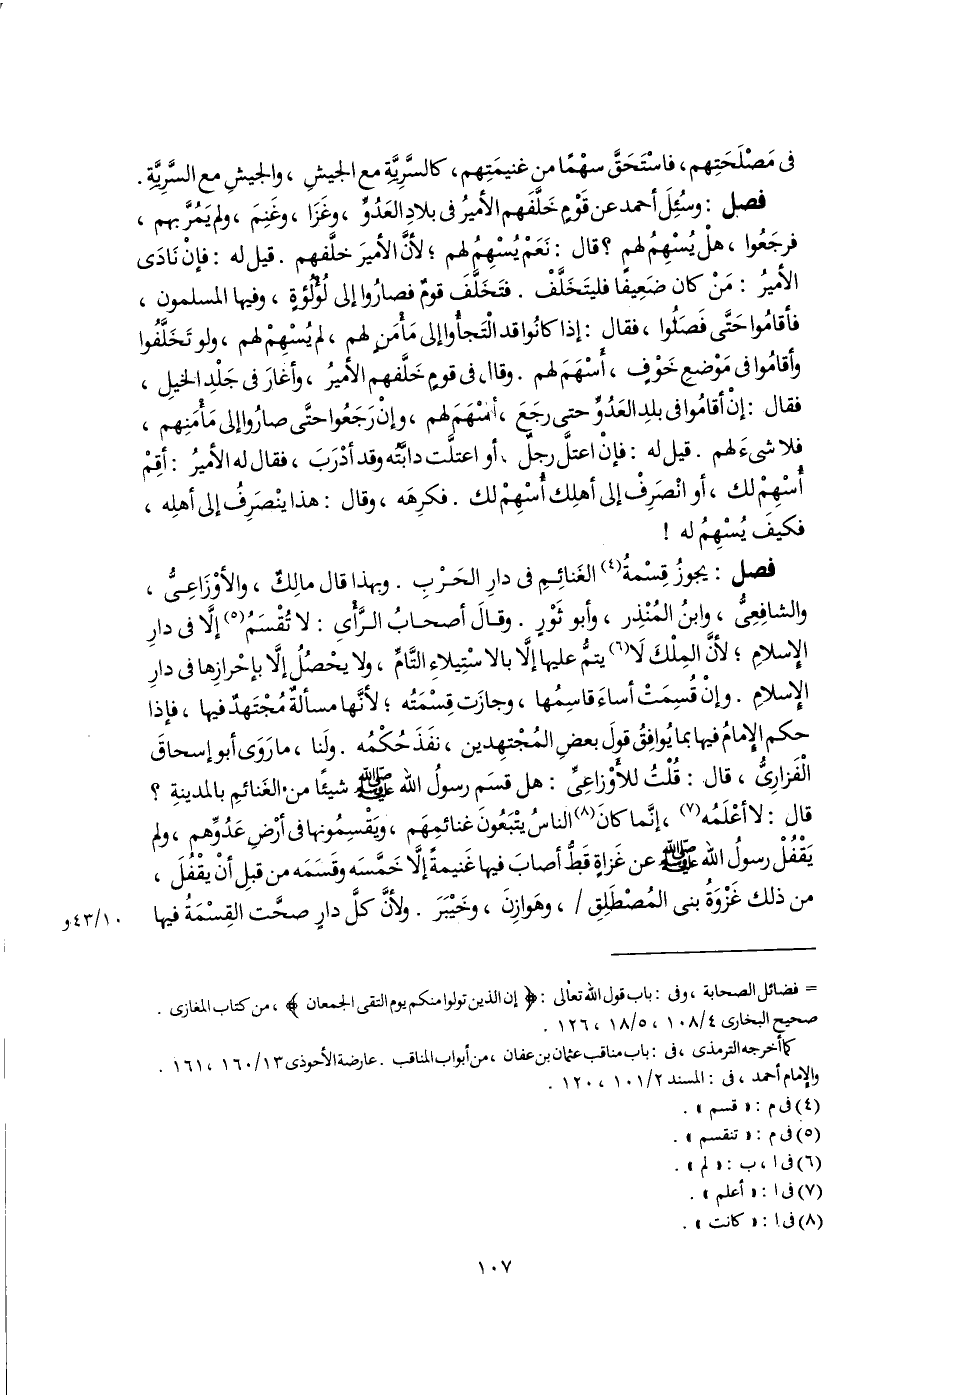 فى مَصْلَحَتِهم ، فاسْتَحَقَّ سهْمًا من غنيمَتِهم ، كالسَّرِيَّةِ مع الجيشِ ، والجيشِ مع السَّرِيَّةِ .
فصل : وسُئِلَ أحمد عن قَوْمٍ خلَّفَهم الأميرُ فى بلادِ العَدُوِّ ، وغَزَا ، وغَنِمَ ، ولم يَمُرَّ بهم ،
فرجَعُوا ، هلْ يُسْهِمُ لهم ؟ قال : نَعَمْ يُسْهِمُ لهم ؛ لأنَّ الأميرَ خلَّفهم . قيل له : فإنْ نَادَى
الأميرُ : مَنْ كان ضَعِيفًا فليتَخلَّفْ . فتَخلَّفَ قومٌ فصارُوا إلى لُؤْلُؤةٍ ، وفيها المسلمون ،
فأقامُوا حَتَّى فَصَلُوا ، فقال : إذا كانُوا قد الْتَجأُوا إلى مَأْمَنٍ لهم ، لم يُسْهِمْ لهم ، ولو تَخلَّفُوا
وأقامُوا فى مَوْضعِ خَوْفٍ ، أَسْهَمَ لهم . وقال فى قومٍ خلَّفهم الأميرُ ، وأغارَ فى جَلْدِ الخيلِ ،
فقال : إنْ أقامُوا فى بلدِ العَدُوِّ حتى رجَعَ ، أسْهَمَ لهم ، وإن رَجَعُوا حتَّى صارُوا إلى مَأْمَنِهم ،
فلا شىءَ لهم . قيل له : فإنْ اعتلَّ رجلٌ ، أو اعتلَّت دابَّتُه وقد أدْرَبَ ، فقال له الأميرُ : أقِمْ
أُسْهِمْ لك ، أو انْصَرِفْ إلى أهلِك أُسْهِمْ لك . فكرِهَه ، وقال : هذا ينْصَرِفُ إلى أهلِه ،
فكيفَ يُسْهِمُ له !
فصل : يجوزُ قِسْمةُ(٤) الغَنائِمِ فى دارِ الحَرْبِ . وبهذا قال مالِكٌ ، والأوْزَاعِىُّ ،
والشافِعِىُّ ، وابنُ المُنْذِر ، وأبو ثَوْرٍ . وقال أصحابُ الرَّأْىِ : لا تُقْسَمُ(٥) إلَّا فى دارِ
الإِسلامِ ؛ لأنَّ المِلْكَ لَا(٦) يتمُّ عليها إلَّا بالاسْتِيلاءِ التَّامِّ ، ولا يحْصُلُ إلَّا بإحْرازِها فى دارِ
الإِسلامِ . وإنْ قُسِمَتْ أساءَ قاسِمُها ، وجازَت قِسْمَتُه ؛ لأنَّها مسألةٌ مُجْتَهدٌ فيها ، فإذا
حكم الإِمامُ فيها بما يُوافِقُ قولَ بعضِ المُجْتهِدين ، نفَذَ حُكْمُه . ولَنا ، ما رَوَى أبو إسحاقَ
الْفَزارِىُّ ، قال : قُلْتُ للأوْزاعِىِّ : هل قسَم رسولُ الله ﷺ شيئًا من الغَنائمِ بالمدينةِ ؟
قال : لا أعْلَمُه(٧) ، إنَّما كانَ(٨) الناسُ يتْبَعُونَ غنائمَهم ، ويَقْسِمُونها فى أرْضِ عَدُوِّهم ، ولم
يَقْفُلْ رسولُ الله ﷺ عن غَزاةٍ قَطُّ أصابَ فيها غنيمةً إلَّا خَمَّسَه وقَسَمَه من قبلِ أنْ يقْفُلَ ،
من ذلك غَزْوَةُ بنى المُصْطَلِقِ / ، وهَوازِنَ ، وخَيْبَرَ . ولأنَّ كلَّ دارٍ صحَّت القِسْمَةُ فيها ١٠/٤٣و
= فضائل الصحابة ، وفى : باب قول الله تعالى : ﴿ إن الذين تولوا منكم يوم التقى الجمعان ﴾ ، من كتاب المغازى .
صحيح البخارى ٤/١٠٨ ، ٥/١٨ ، ١٢٦ .
كما أخرجه الترمذى ، فى : باب مناقب عثمان بن عفان ، من أبواب المناقب . عارضة الأحوذى ١٣/١٦٠ ، ١٦١ .
والإمام أحمد ، فى : المسند ٢/١٠١ ، ١٢٠ .
(٤) فى م : « قسم » .
(٥) فى م : « تنقسم » .
(٦) فى ا ، ب : « لم » .
(٧) فى ا : « أعلم » .
(٨) فى ا : « كانت » .
١٠٧